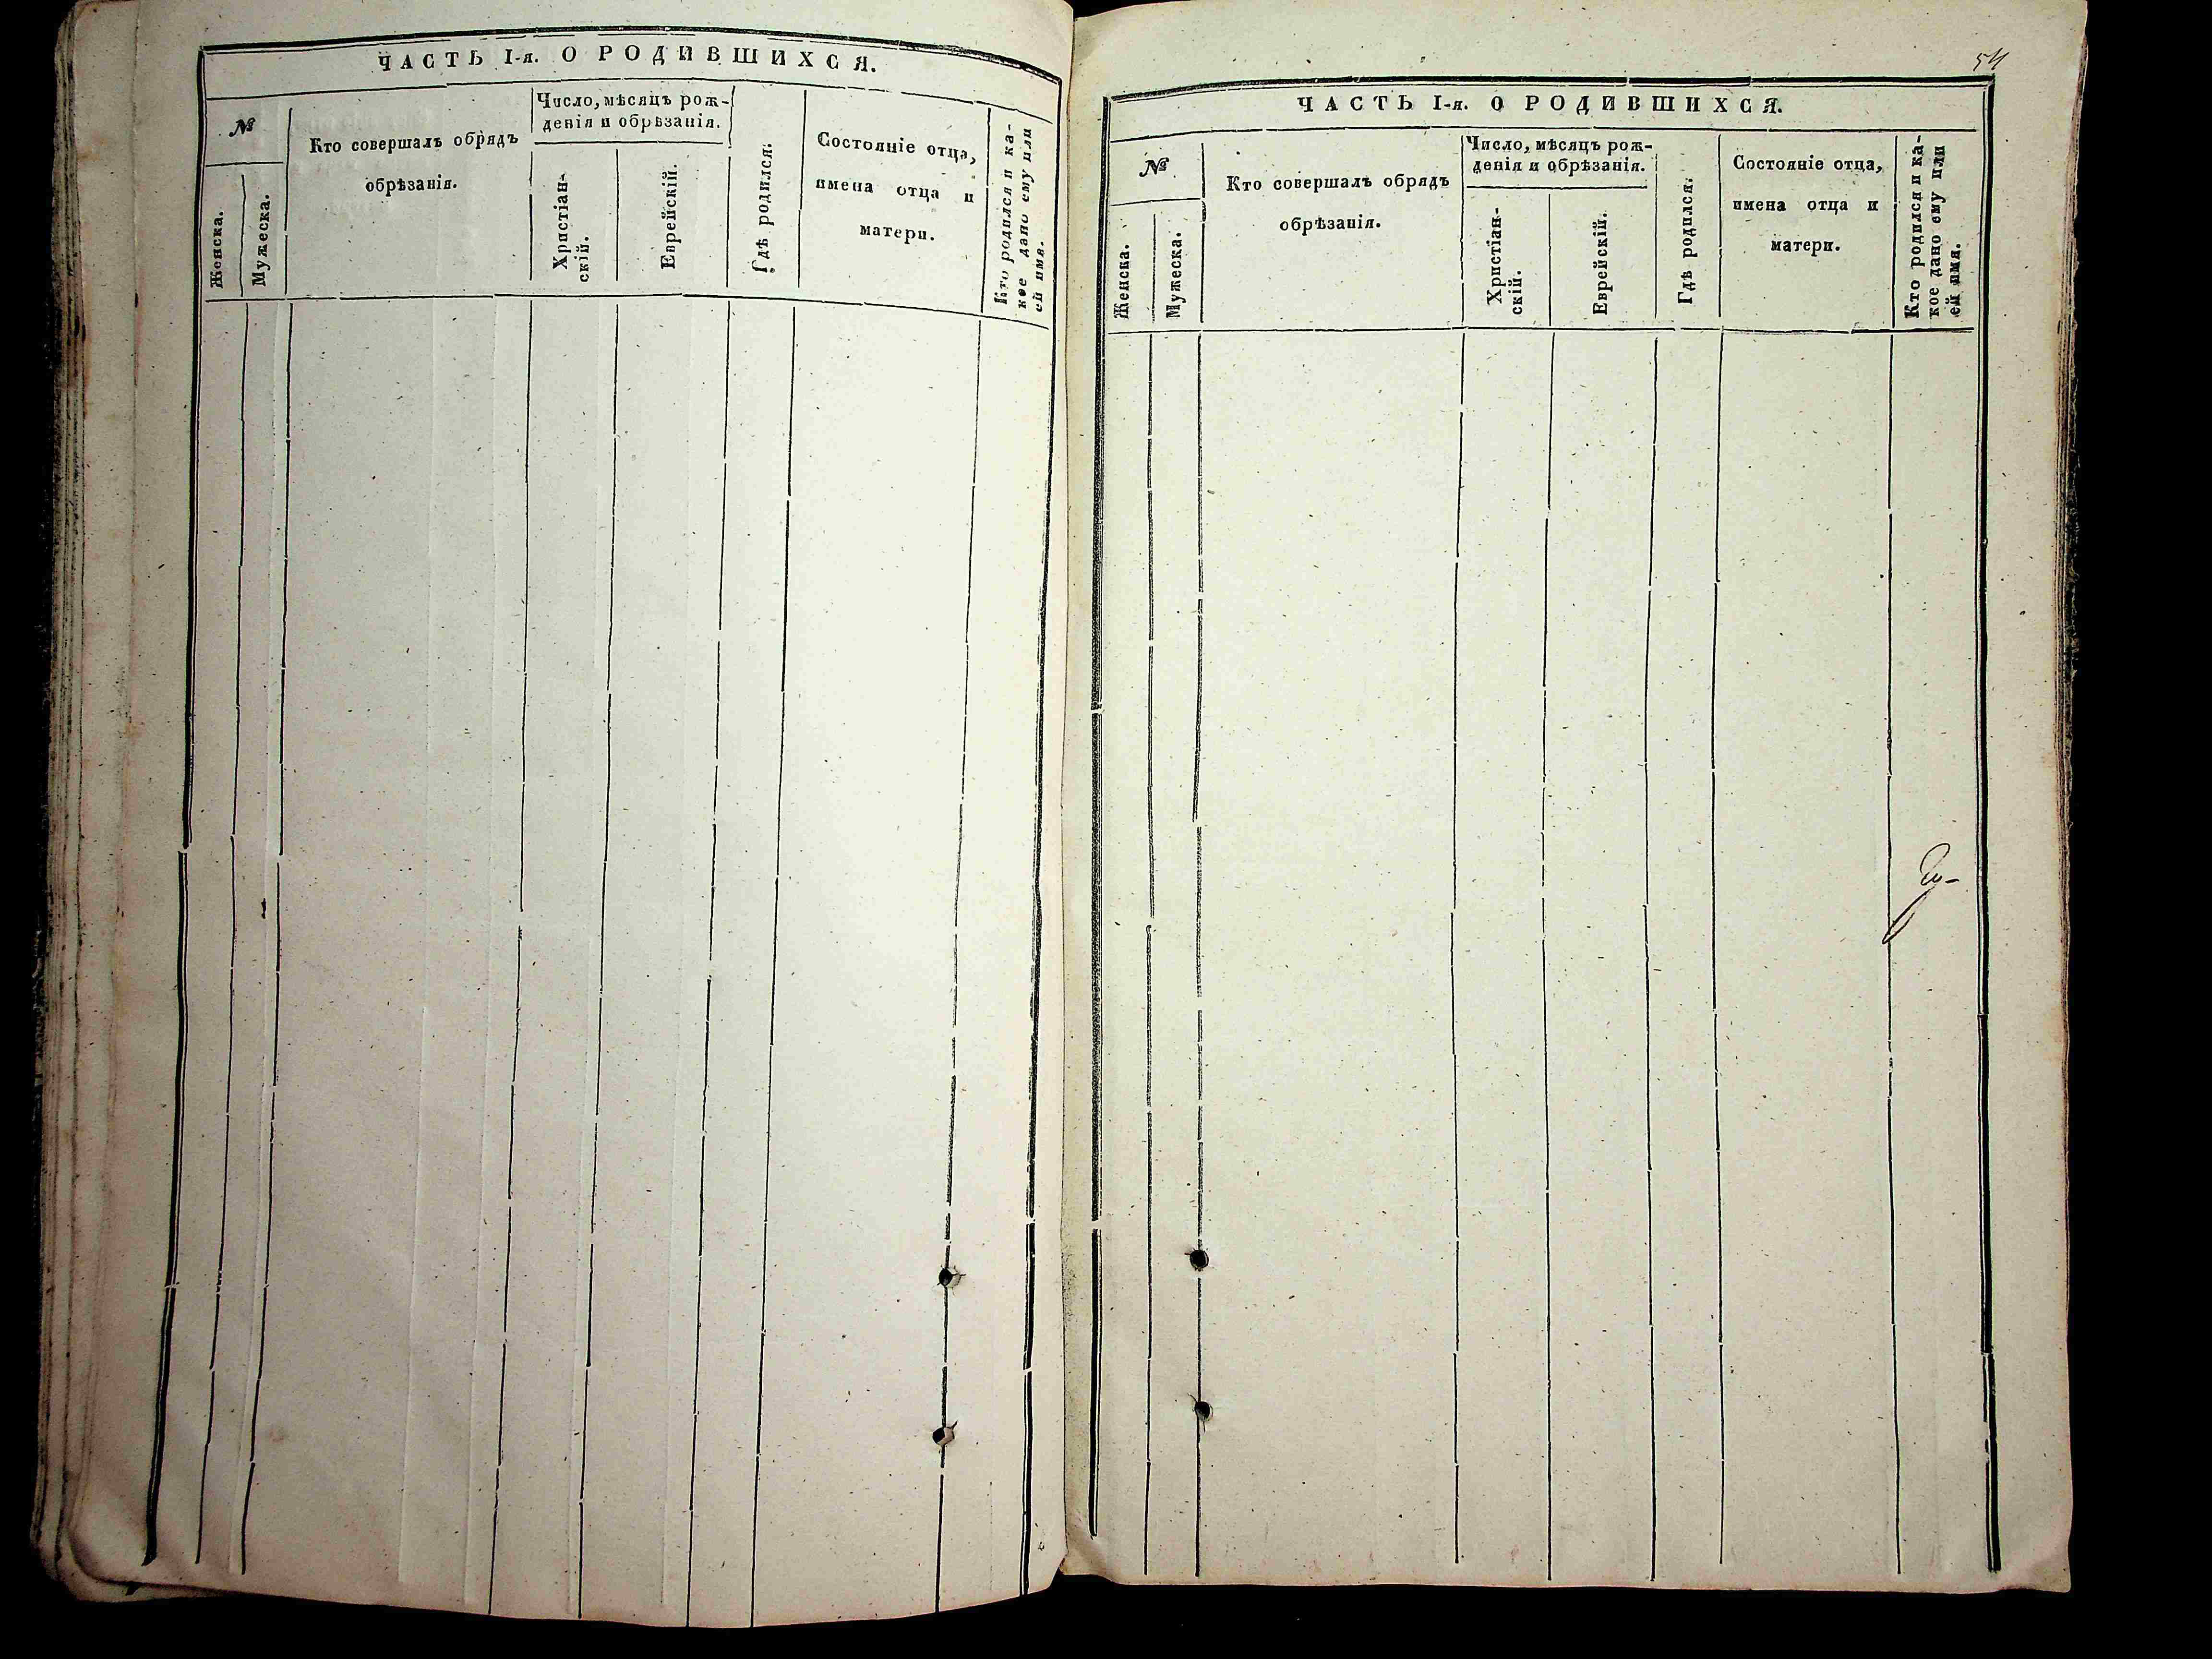 ЧАСТЬ I-я. О РОДИВШИХСЯ.
№
Женска.
Мужеска.
Кто совершалъ обрядъ
обрѣзанія.
Число, мѣсяцъ рож-
денія и обрѣзанія.
Христіан-
скій.
Еврейскій.
Гдѣ родился.
Состояніе отца,
имена отца и
матери.
Кто родился и ка-
кое дано ему или
ей имя.
54
ЧАСТЬ I-я. О РОДИВШИХСЯ.
№
Женска.
Мужеска.
Кто совершалъ обрядъ
обрѣзанія.
Число, мѣсяцъ рож-
денія и обрѣзанія.
Христіан-
скій.
Еврейскій.
Гдѣ родился.
Состояніе отца,
имена отца и
матери.
Кто родился и ка-
кое дано ему или
ей имя.